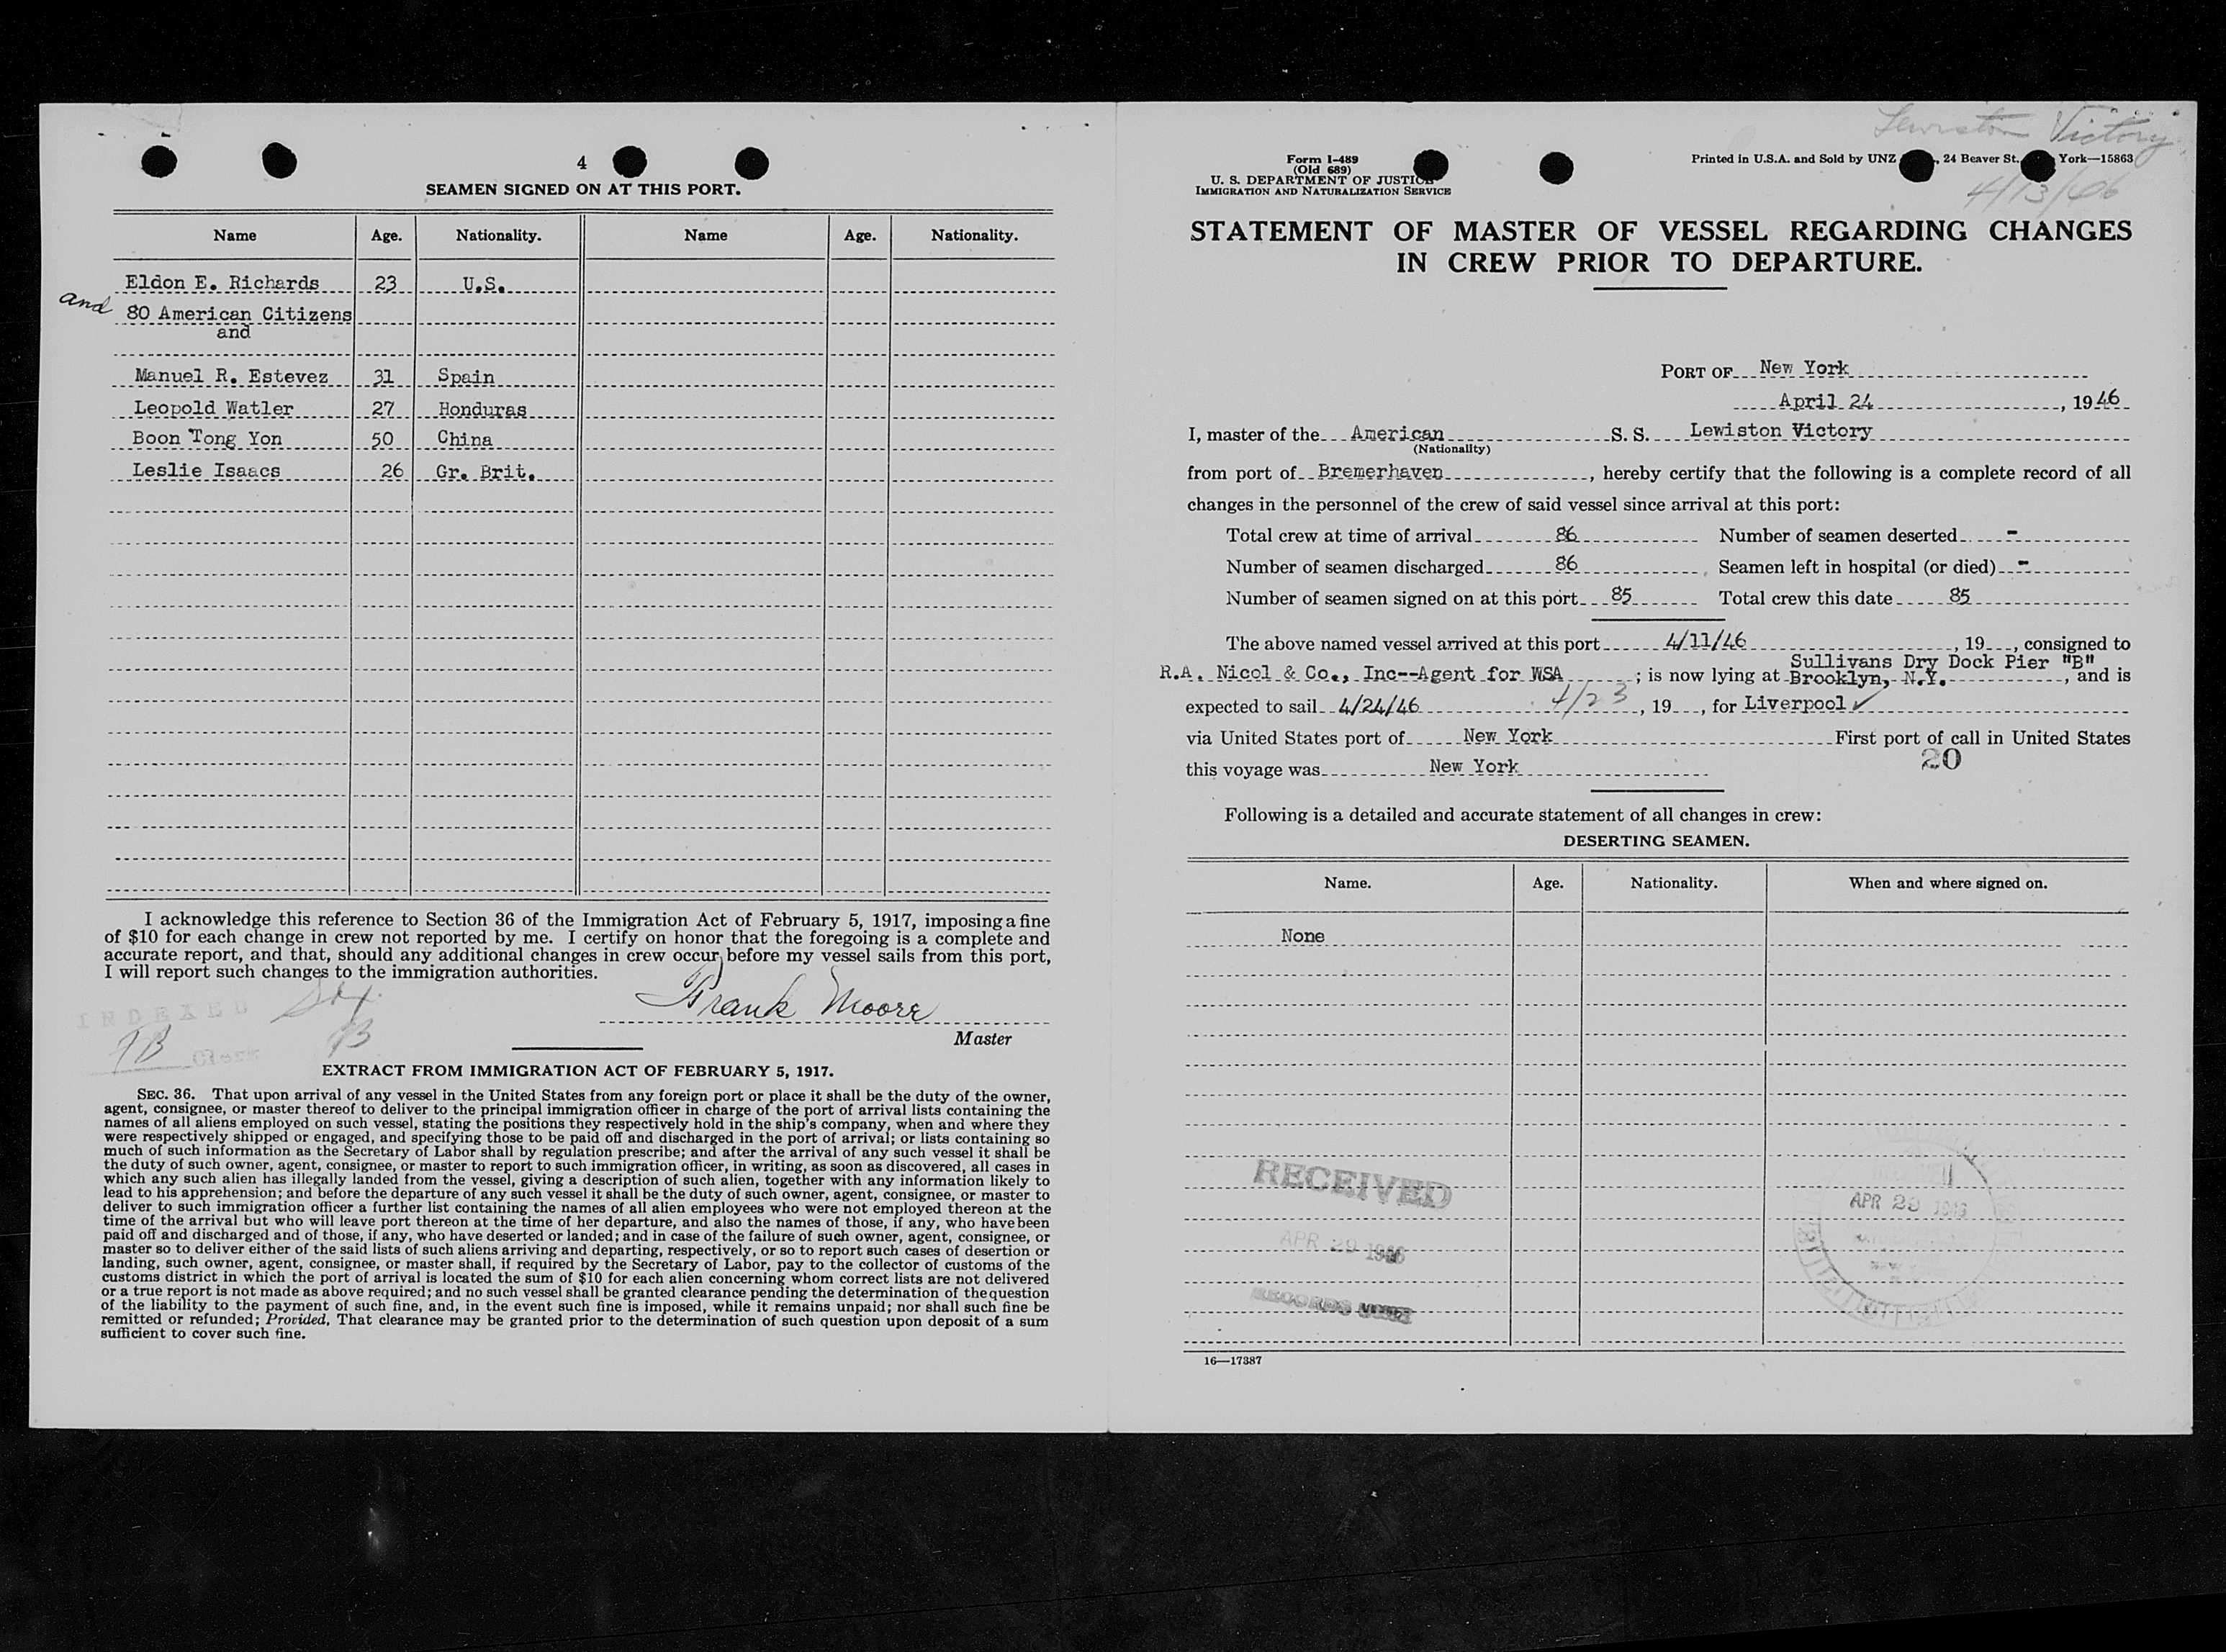 4
SEAMEN SIGNED ON AT THIS PORT.
Name Age. Nationality. Name Age. Nationality.
Eldon E. Richards 23 U.S.
and 80 American Citizens
and
Manuel R. Estevez 31 Spain
Leopold Watler 27 Honduras
Boon Tong Yon 50 China
Leslie Isaacs 26 Gr. Brit.
I acknowledge this reference to Section 36 of the Immigration Act of February 5, 1917, imposing a fine
of $10 for each change in crew not reported by me. I certify on honor that the foregoing is a complete and
accurate report, and that, should any additional changes in crew occur before my vessel sails from this port,
I will report such changes to the immigration authorities.
INDEXED
Frank Moore
Master
Clerk
EXTRACT FROM IMMIGRATION ACT OF FEBRUARY 5, 1917.
SEC. 36. That upon arrival of any vessel in the United States from any foreign port or place it shall be the duty of the owner,
agent, consignee, or master thereof to deliver to the principal immigration officer in charge of the port of arrival lists containing the
names of all aliens employed on such vessel, stating the positions they respectively hold in the ship's company, when and where they
were respectively shipped or engaged, and specifying those to be paid off and discharged in the port of arrival; or lists containing so
much of such information as the Secretary of Labor shall by regulation prescribe; and after the arrival of any such vessel it shall be
the duty of such owner, agent, consignee, or master to report to such immigration officer, in writing, as soon as discovered, all cases in
which any such alien has illegally landed from the vessel, giving a description of such alien, together with any information likely to
lead to his apprehension; and before the departure of any such vessel it shall be the duty of such owner, agent, consignee, or master to
deliver to such immigration officer a further list containing the names of all alien employees who were not employed thereon at the
time of the arrival but who will leave port thereon at the time of her departure, and also the names of those, if any, who have been
paid off and discharged and of those, if any, who have deserted or landed; and in case of the failure of such owner, agent, consignee, or
master so to deliver either of the said lists of such aliens arriving and departing, respectively, or so to report such cases of desertion or
landing, such owner, agent, consignee, or master shall, if required by the Secretary of Labor, pay to the collector of customs of the
customs district in which the port of arrival is located the sum of $10 for each alien concerning whom correct lists are not delivered
or a true report is not made as above required; and no such vessel shall be granted clearance pending the determination of the question
of the liability to the payment of such fine, and, in the event such fine is imposed, while it remains unpaid; nor shall such fine be
remitted or refunded; Provided, That clearance may be granted prior to the determination of such question upon deposit of a sum
sufficient to cover such fine.
Lewiston Victory
4/13/46
Form I-489
(Old 689)
U. S. DEPARTMENT OF JUSTICE
IMMIGRATION AND NATURALIZATION SERVICE
Printed in U.S.A. and Sold by UNZ , 24 Beaver St., York—15863
STATEMENT OF MASTER OF VESSEL REGARDING CHANGES
IN CREW PRIOR TO DEPARTURE.
PORT OF New York
April 24, 1946
I, master of the American S. S. Lewiston Victory
(Nationality)
from port of Bremerhaven, hereby certify that the following is a complete record of all
changes in the personnel of the crew of said vessel since arrival at this port:
Total crew at time of arrival 86 Number of seamen deserted -
Number of seamen discharged 86 Seamen left in hospital (or died) -
Number of seamen signed on at this port 85 Total crew this date 85
The above named vessel arrived at this port 4/11/46, 19 , consigned to
R.A. Nicol & Co., Inc--Agent for WSA ; is now lying at Sullivans Dry Dock Pier "B" Brooklyn, N.Y. , and is
expected to sail 4/24/46 4/23, 19 , for Liverpool ✓
via United States port of New York First port of call in United States
this voyage was New York
20
Following is a detailed and accurate statement of all changes in crew:
DESERTING SEAMEN.
Name. Age. Nationality. When and where signed on.
None
RECEIVED
APR 29 1946
APR 29 1946
RECORDS
16—17387